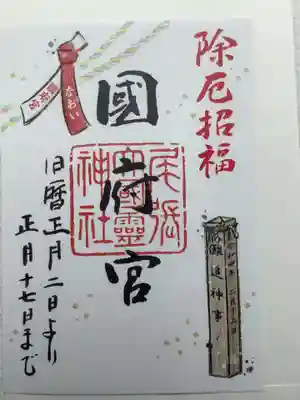 除厄招福
國府宮
尾張
大國靈
神社
なおい
旧暦正月二日より
正月十七日まで
儺追神事